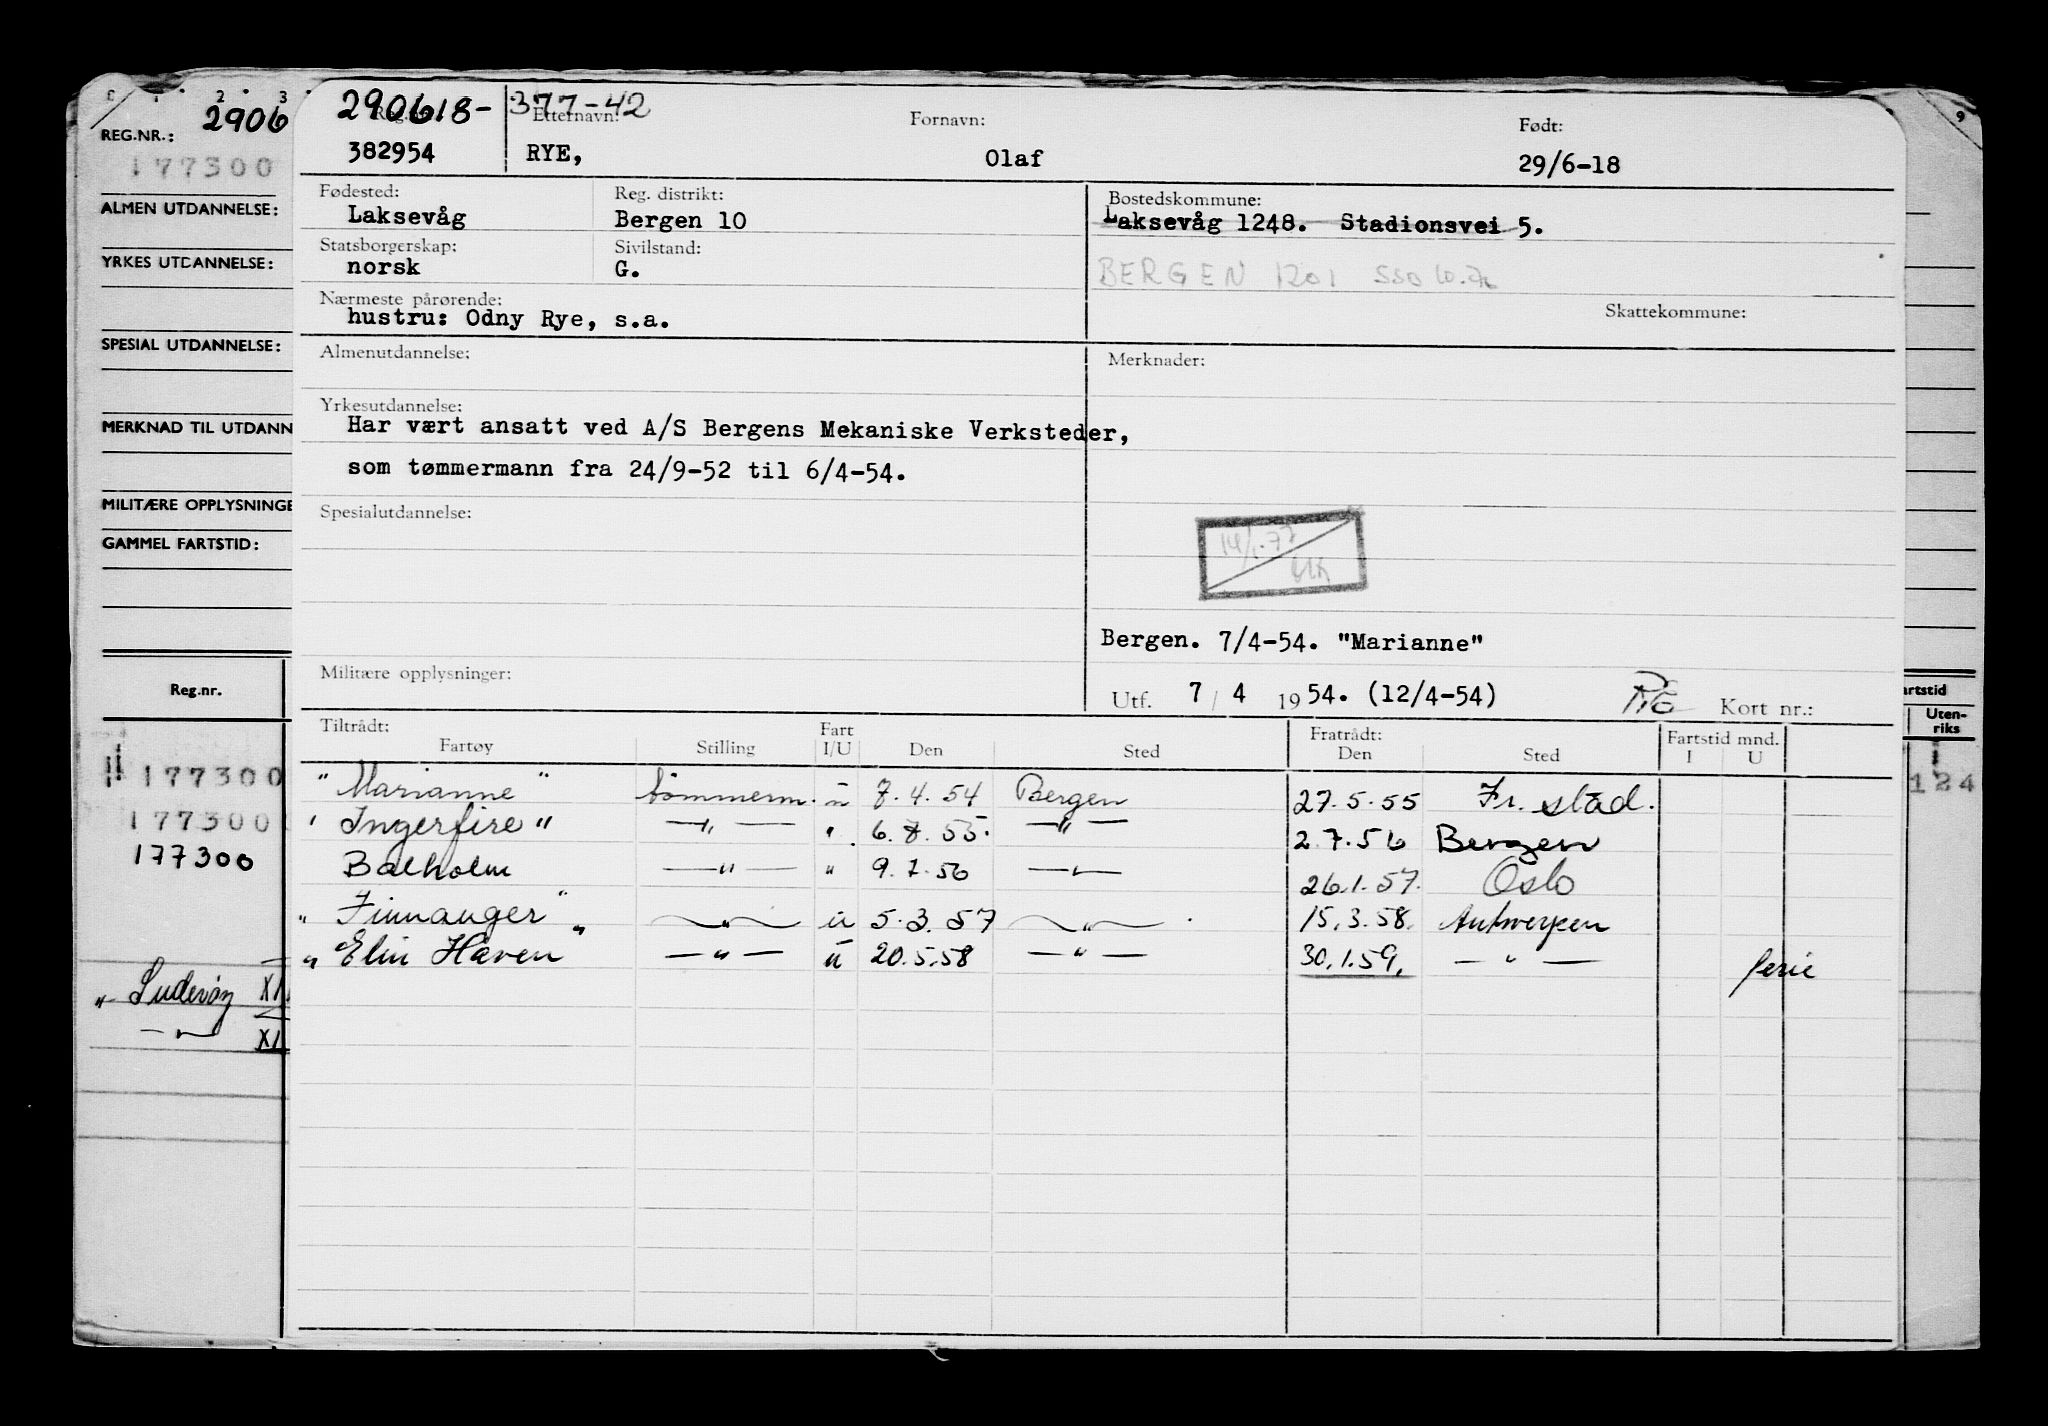 1 2 3 9
REG.NR.: 2906
177300
ALMEN UTDANNELSE:
YRKES UTDANNELSE:
SPESIAL UTDANNELSE:
MERKNAD TIL UTDANN
MILITÆRE OPPLYSNINGE
GAMMEL FARTSTID:
Reg.nr.
177300
177300
177300
" Suderøy XI
XI
290618- 377-42
Etternavn: Fornavn: Født:
382954 RYE, Olaf 29/6-18
Fødested: Reg. distrikt: Bostedskommune:
Laksevåg Bergen 10 Laksevåg 1248. Stadionsvei 5.
Statsborgerskap: Sivilstand:
norsk G. BERGEN 1201
Nærmeste pårørende: Skattekommune:
hustru: Odny Rye, s.a.
Almenutdannelse: Merknader:
Yrkesutdannelse:
Har vært ansatt ved A/S Bergens Mekaniske Verksteder,
som tømmermann fra 24/9-52 til 6/4-54.
Spesialutdannelse:
14/1-73
Bergen. 7/4-54. "Marianne"
Militære opplysninger: Utf. 7 / 4 1954. (12/4-54) Kort nr.:
Tiltrådt: Fart Fratrådt: Fartstid mnd.
Fartøy Stilling I/U Den Sted Den Sted I U
" Marianne " tømmerm. u 7.4.54 Bergen 27.5.55 Fr.stad.
" Ingerfire" —"— " 6.7.55. —"— 2.7.56 Bergen
Balholm —"— " 9.7.56 —"— 26.1.57. Oslo
" Finnanger " —"— u 5.3.57 —"— 15.3.58. Antwerpen
" Elin Haven —"— u 20.5.58 —"— 30.1.59. —"— ferie
artstid
Uten-
riks
124